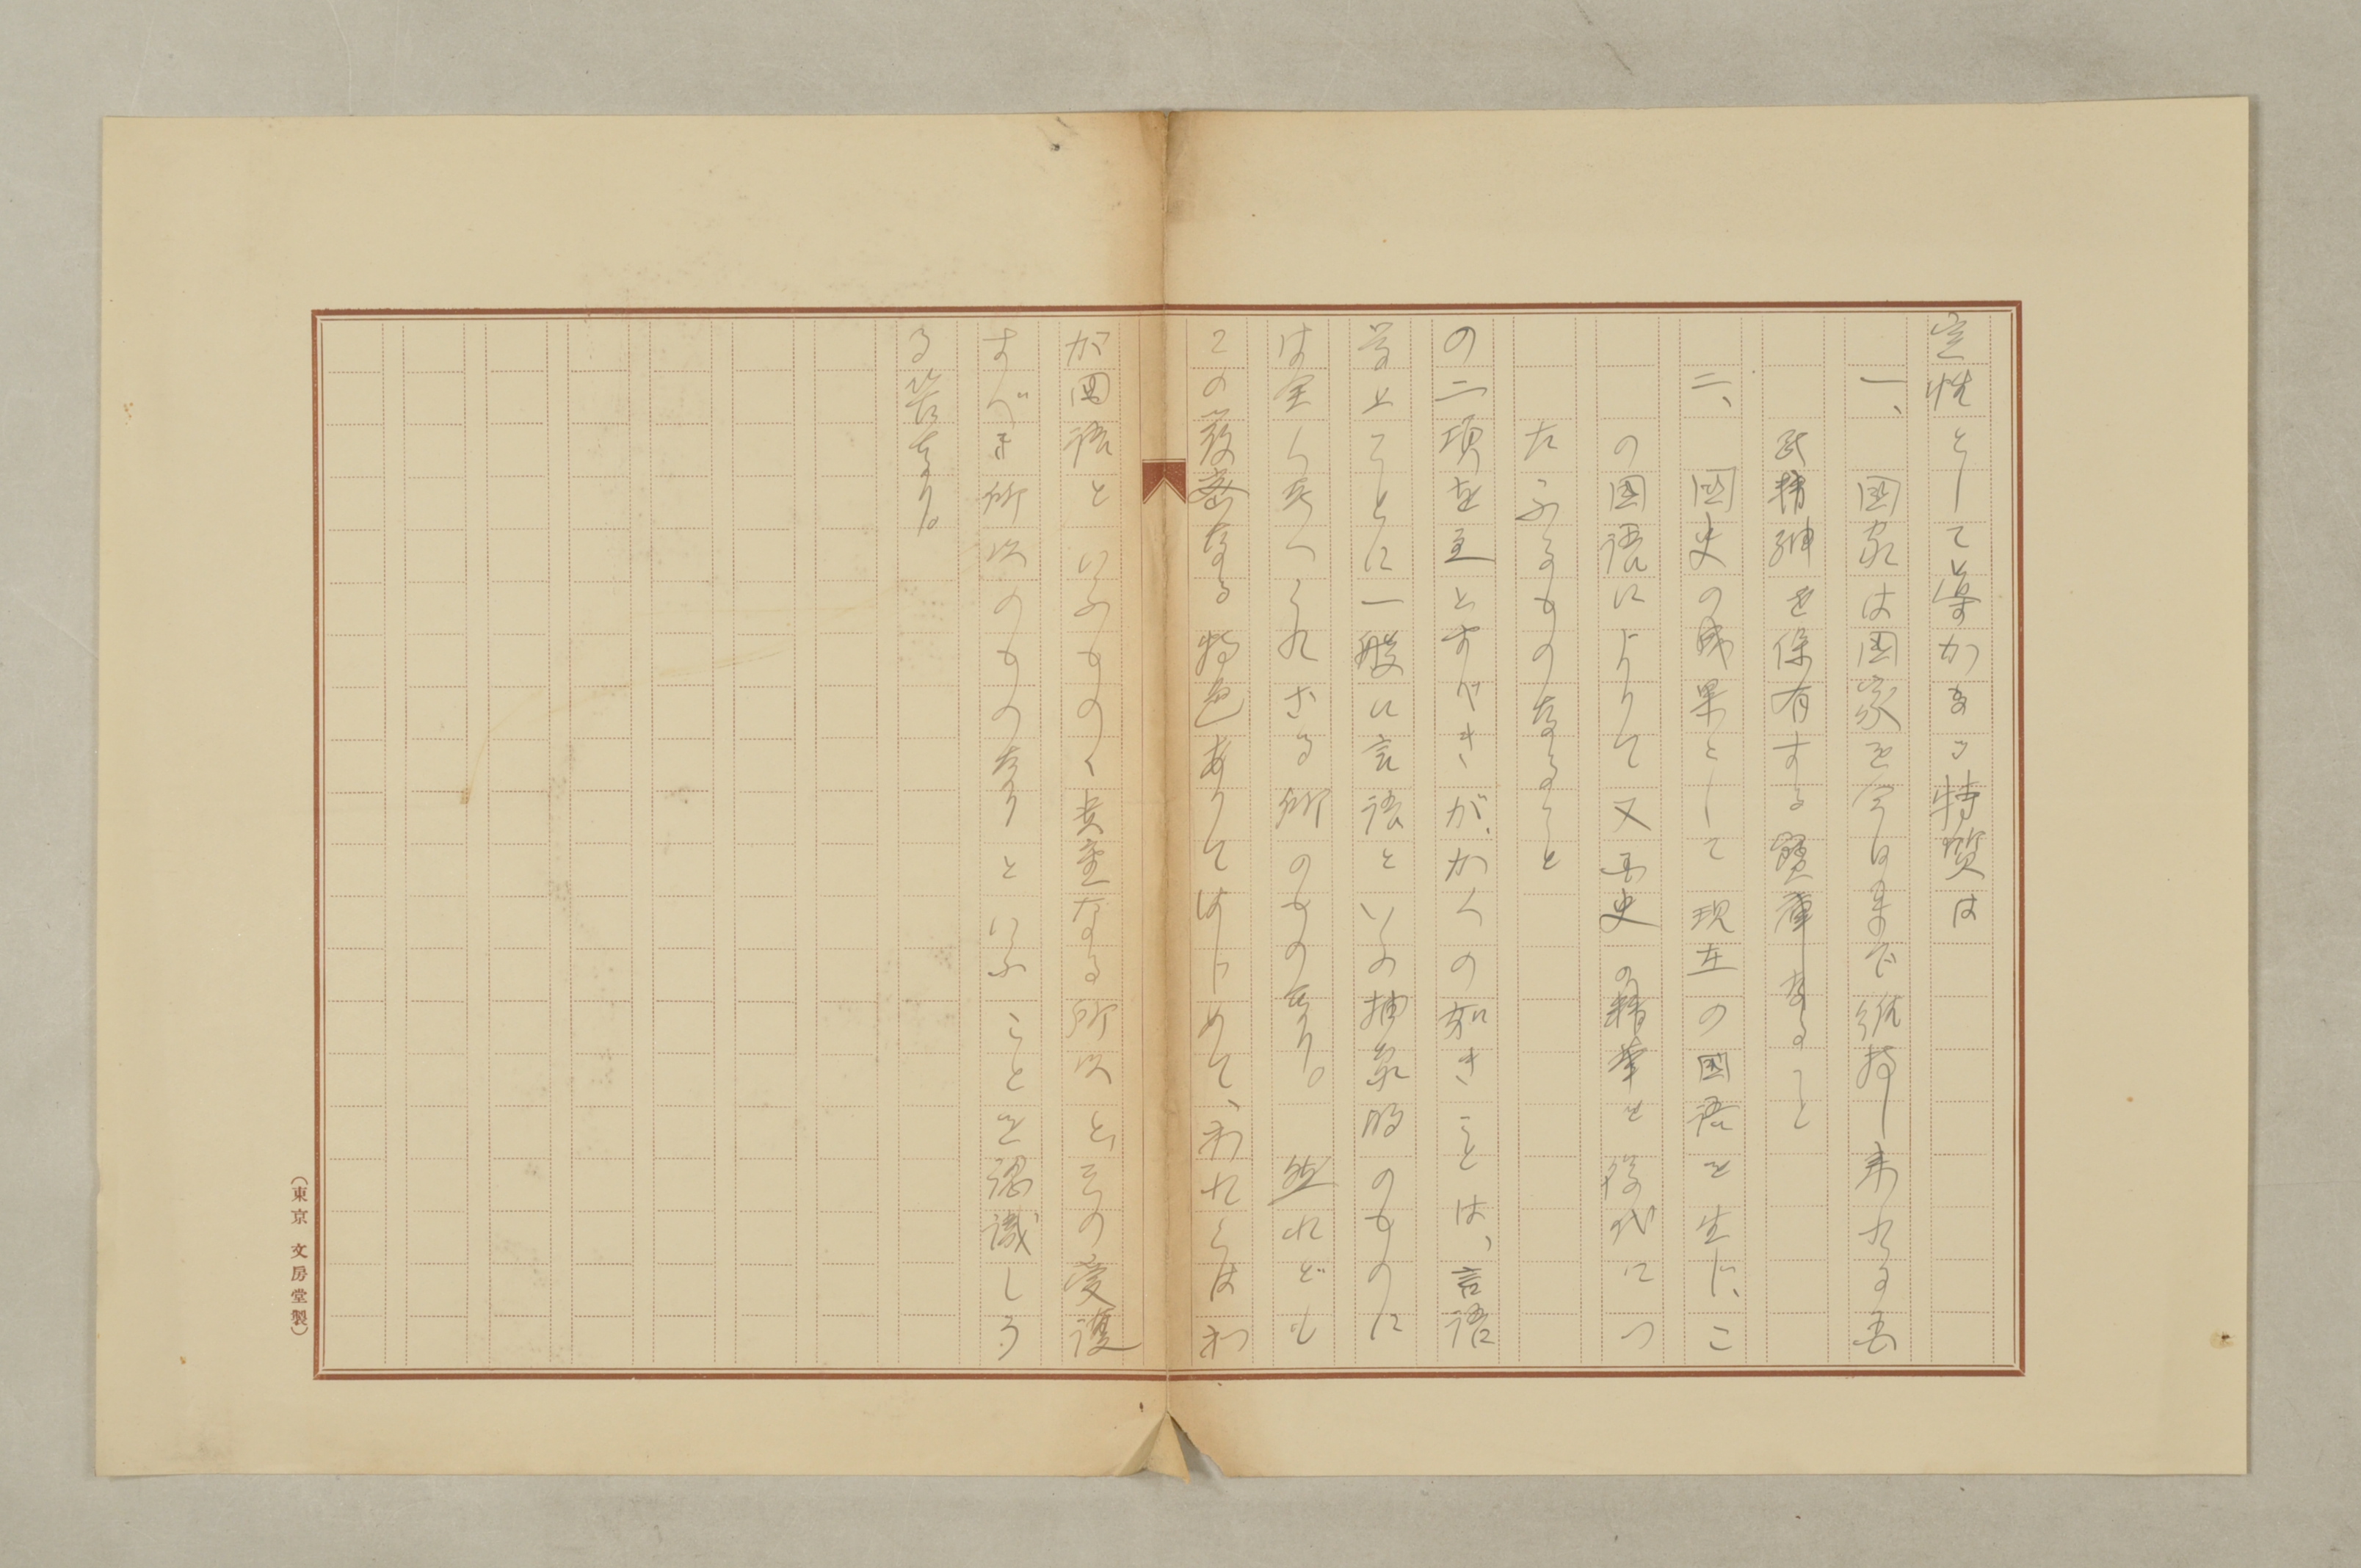 定性として導かるゝ特質は
一、国家は国家を今日まで維持し来れる吾
民精神を保有する寶庫なること
二、国史の成果として現在の国語を生じ、こ
の国語によりて又国史の精華を後代につ
たふるものなること
の二項を主とすべきが、かくの如きことは、言語
学上ことに一般に言語といふ抽象的のものに
は全く考へられざる所のものなり。然れども
この厳密なる特色ありてはじめて、われらはわ
が国語といふものゝ貴重なる所以と、その愛護
すべき所以のものなりといふことを認識しう
る筈なり。
(東京 文房堂製)